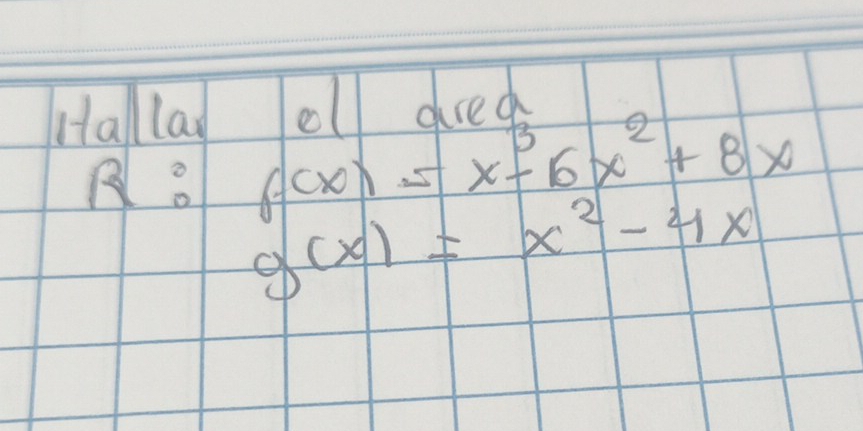 Hallar el area
R: f(x) = x³-6x²+8x
g(x) = x²-4x